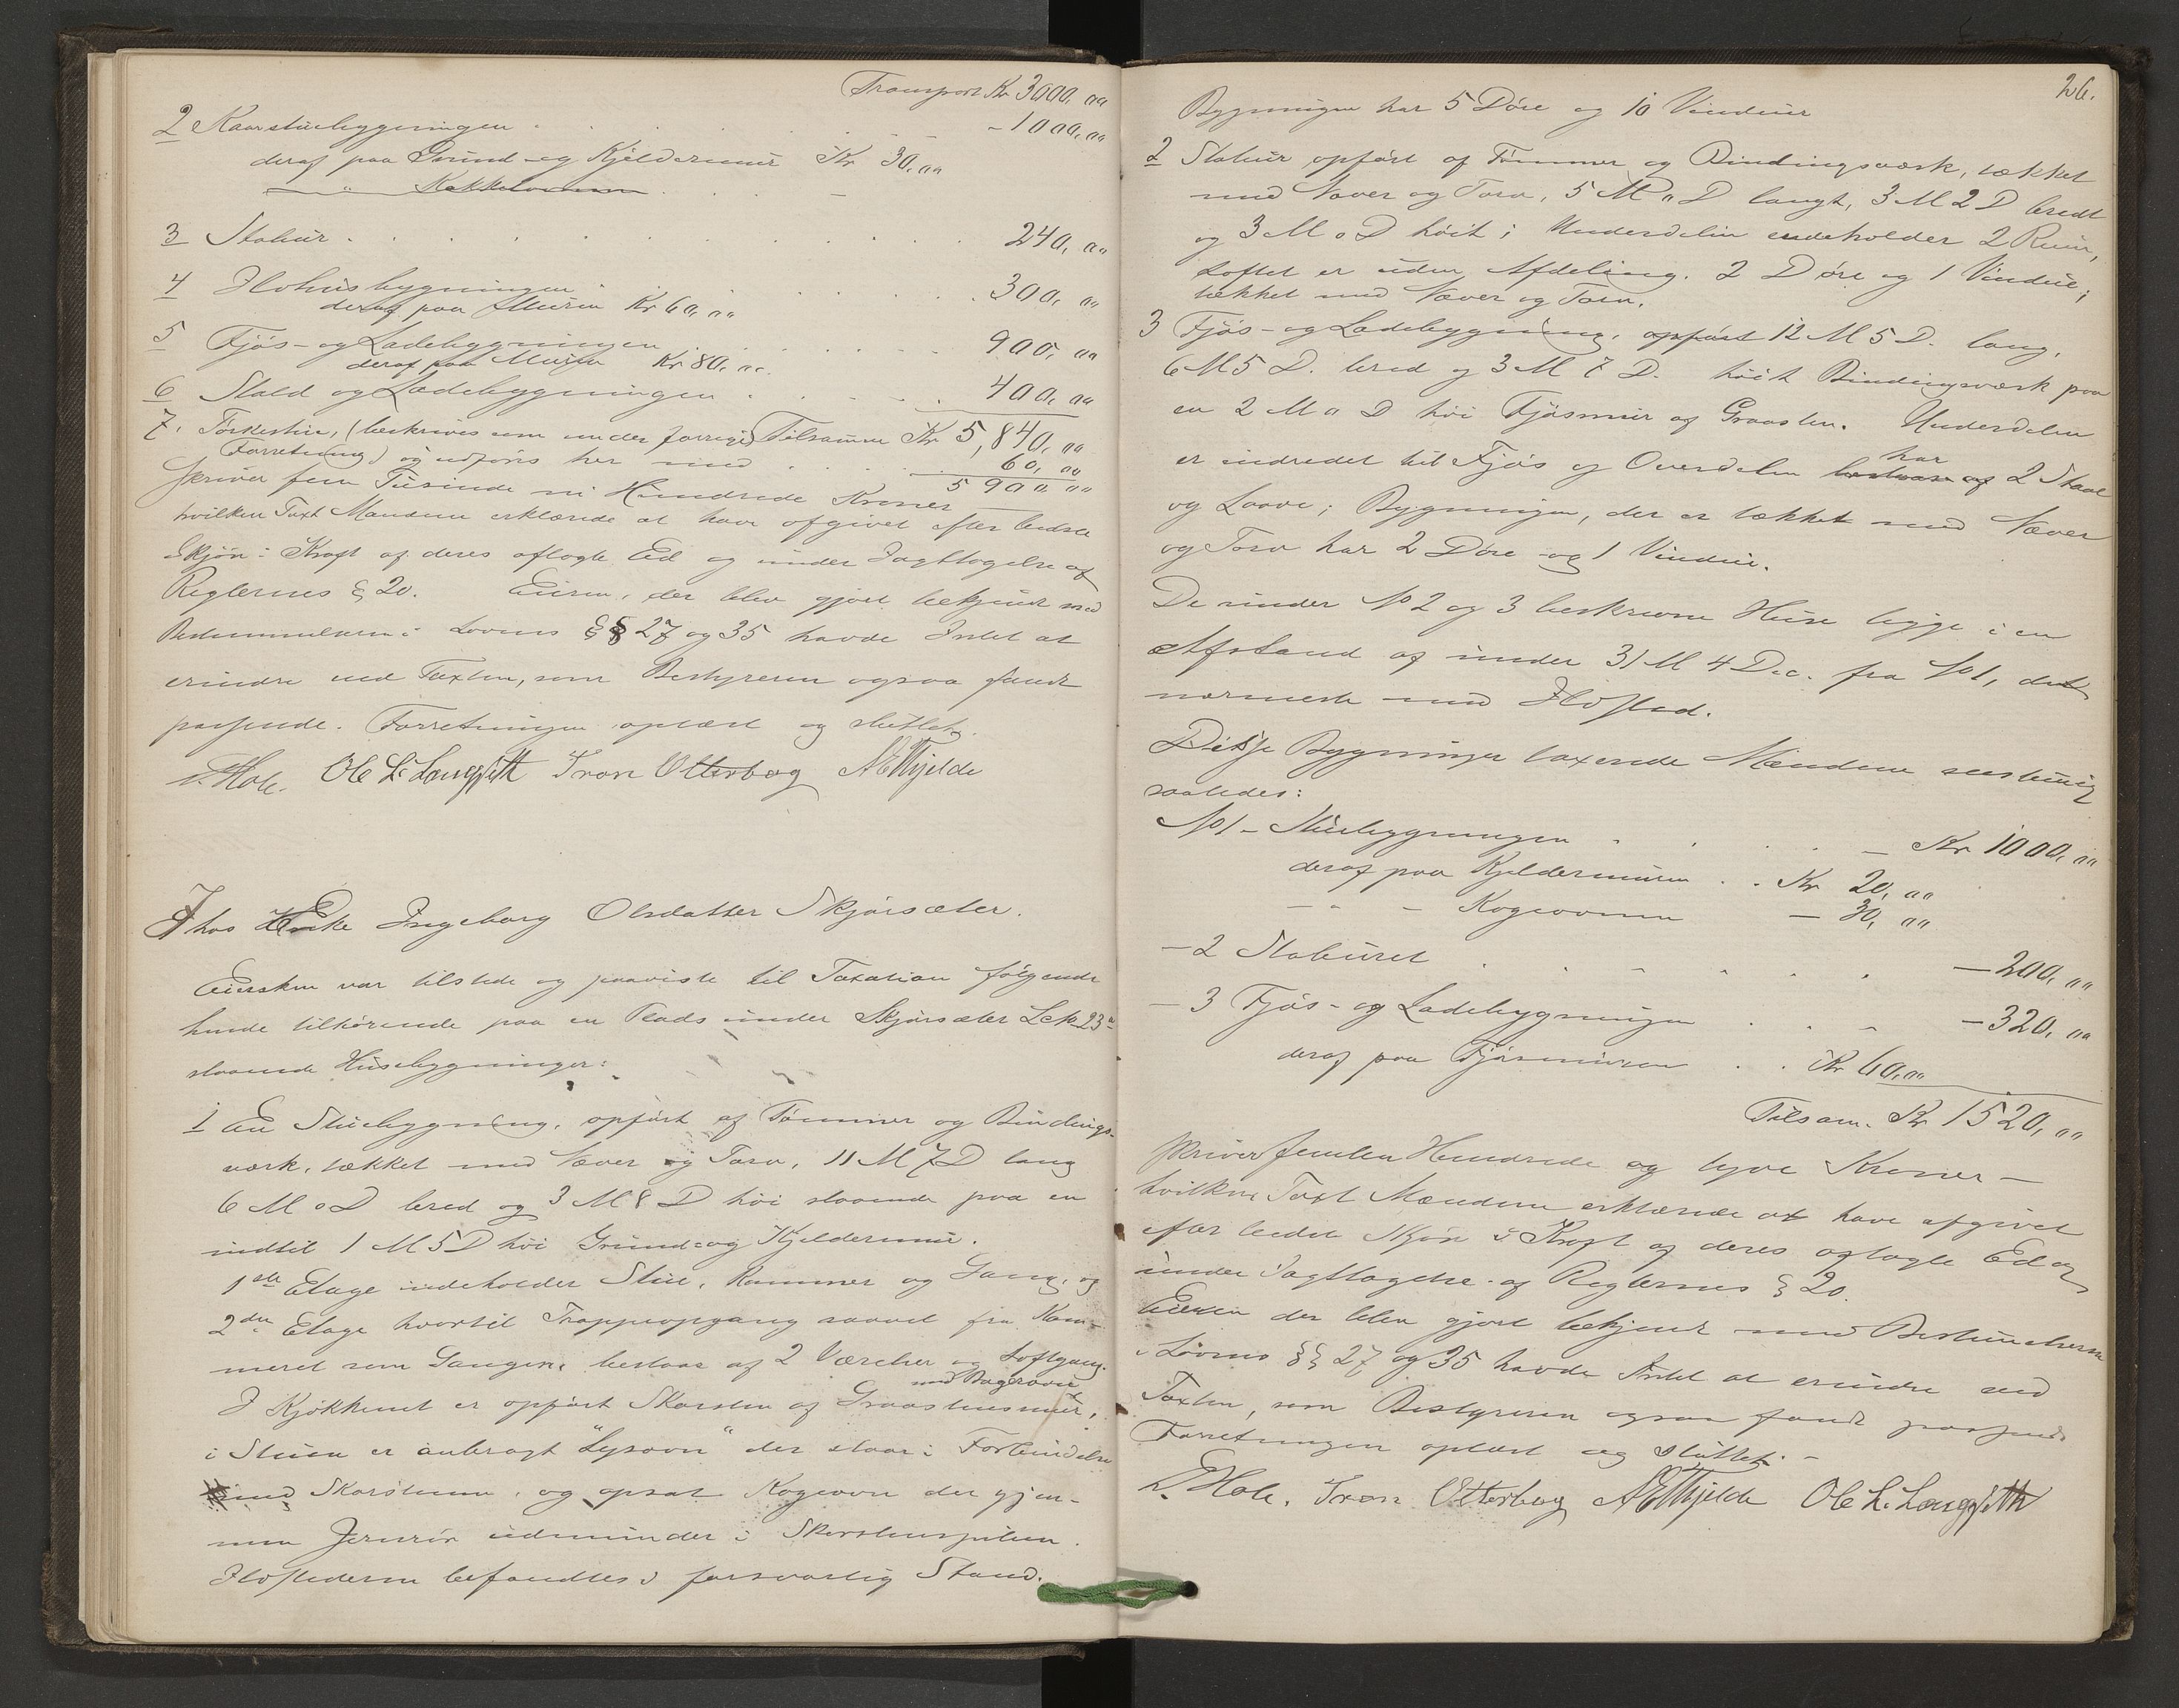 Transport Kr 3000,00
2 Kaarstuebygningen - 1000,00
deraf paa Grund- og Kjeldermuur Kr 30,00
— " — Kakkelovnen —
3 Stabur 240,00
4 Ildhusbygningen 300,00
deraf paa Muren Kr 60,00
5 Fjøs- og Ladebygningen 900,00
deraf paa Muren Kr 80,00
6 Stald og Ladebygningen 400,00
7. Tørkestue, (beskrives som under forrige Tilsammen Kr 5,840,00
Forretning) og udføres her med 60,00
5 900,00
skriver fem Tusinde ni Hundrede Kroner —
hvilken Taxt Mændene erklærede at have afgivet efter bedste
Skjøn i Kraft af deres aflagte Ed og under Iagttagelse af
Reglernes § 20. Eieren, der blev gjort bekjendt med
Bestemmelserne i Lovens §§ 27 og 35 havde Intet at
erindre ved Taxten, som Bestyreren ogsaa fandt
passende. Forretningen oplæst og sluttet.
Hole. Ole L. Langseth Iver Otterbog A E Kjelde
I hos Enke Ingeborg Olsdatter Skjørsæter.
Eiersken var tilstede og paaviste til Taxation følgende
hende tilhørende paa en Plads under Skjørsæter L. No 23
staaende Husebygninger:
1 En Stuebygning, opført af Tømmer og Bindings-
værk, tækket med Næver og Torv, 11 M 7 D lang
6 M 0 D bred og 3 M 8 D høi staaende paa en
indtil 1 M 5 D høi Grund- og Kjeldermuur.
1ste Etage indeholder Stue, Kammer og Gang, og
2den Etage hvortil Trappeopgang saavel fra Kam-
meret som Gangen, bestaar af 2 Værelser og Loftgang.
med Bagerovn
I Kjøkkenet er opført Skorsten af Graastensmuur,
i Stuen er anbragt "Lysovn" der staar i Forbindelse
med Skorstenen, og opsat Kogeovn der gjen-
nem Jernrør udmunder i Skorstenspiben.
Ildstederne befandtes i forsvarlig Stand.
26.
Bygningen har 5 Døre og 10 Vinduer
2 Stabur opført af Tømmer og Bindingsværk, tækket
med Næver og Torv, 5 M 0 D langt, 3 M 2 D bredt
og 3 M 0 D høit; Underdelen indeholder 2 Rum,
Loftet er uden Afdeling. 2 Døre og 1 Vindue;
tækket med Næver og Torv.
3 Fjøs- og Ladebygning, opført 12 M 5 D. lang,
6 M 5 D. bred og 3 M 7 D. høit Bindingsværk paa
en 2 M 0 D høi Fjøsmuur af Graasten. Underdelen
har
er indredet til Fjøs og Overdelen bestaar af 2 Staal
og Laave; Bygningen, der er tækket med Næver
og Torv har 2 Døre og 1 Vindue.
De under No 2 og 3 beskrevne Huse ligge i en
Afstand af under 31 M 4 Dec. fra No 1, det
nærmeste med Ildsted.
Disse Bygninger taxerede Mændene eenstemmig
saaledes:
No 1 - Stuebygningen — Kr 1000,00
deraf paa Kjeldermuren Kr 20,00
— " — Kogeovnen — 30,00
- 2 Staburet — 200,00
- 3 Fjøs- og Ladebygningen — 320,00
deraf paa Fjøsmuren Kr 60,00
Tilsam. Kr 1520,00
skriver femten Hundrede og tyve Kroner —
hvilken Taxt Mændene erklærede at have afgivet
efter bedste Skjøn i Kraft af deres aflagte Ed og
under Iagttagelse af Reglernes § 20.
Eieren der blev gjort bekjendt med Bestemmelserne
i Lovens §§ 27 og 35 havde Intet at erindre ved
Taxten, som Bestyreren ogsaa fandt passende
Forretningen oplæst og sluttet. —
Hole. Iver Otterbog A E Kjelde Ole L. Langseth